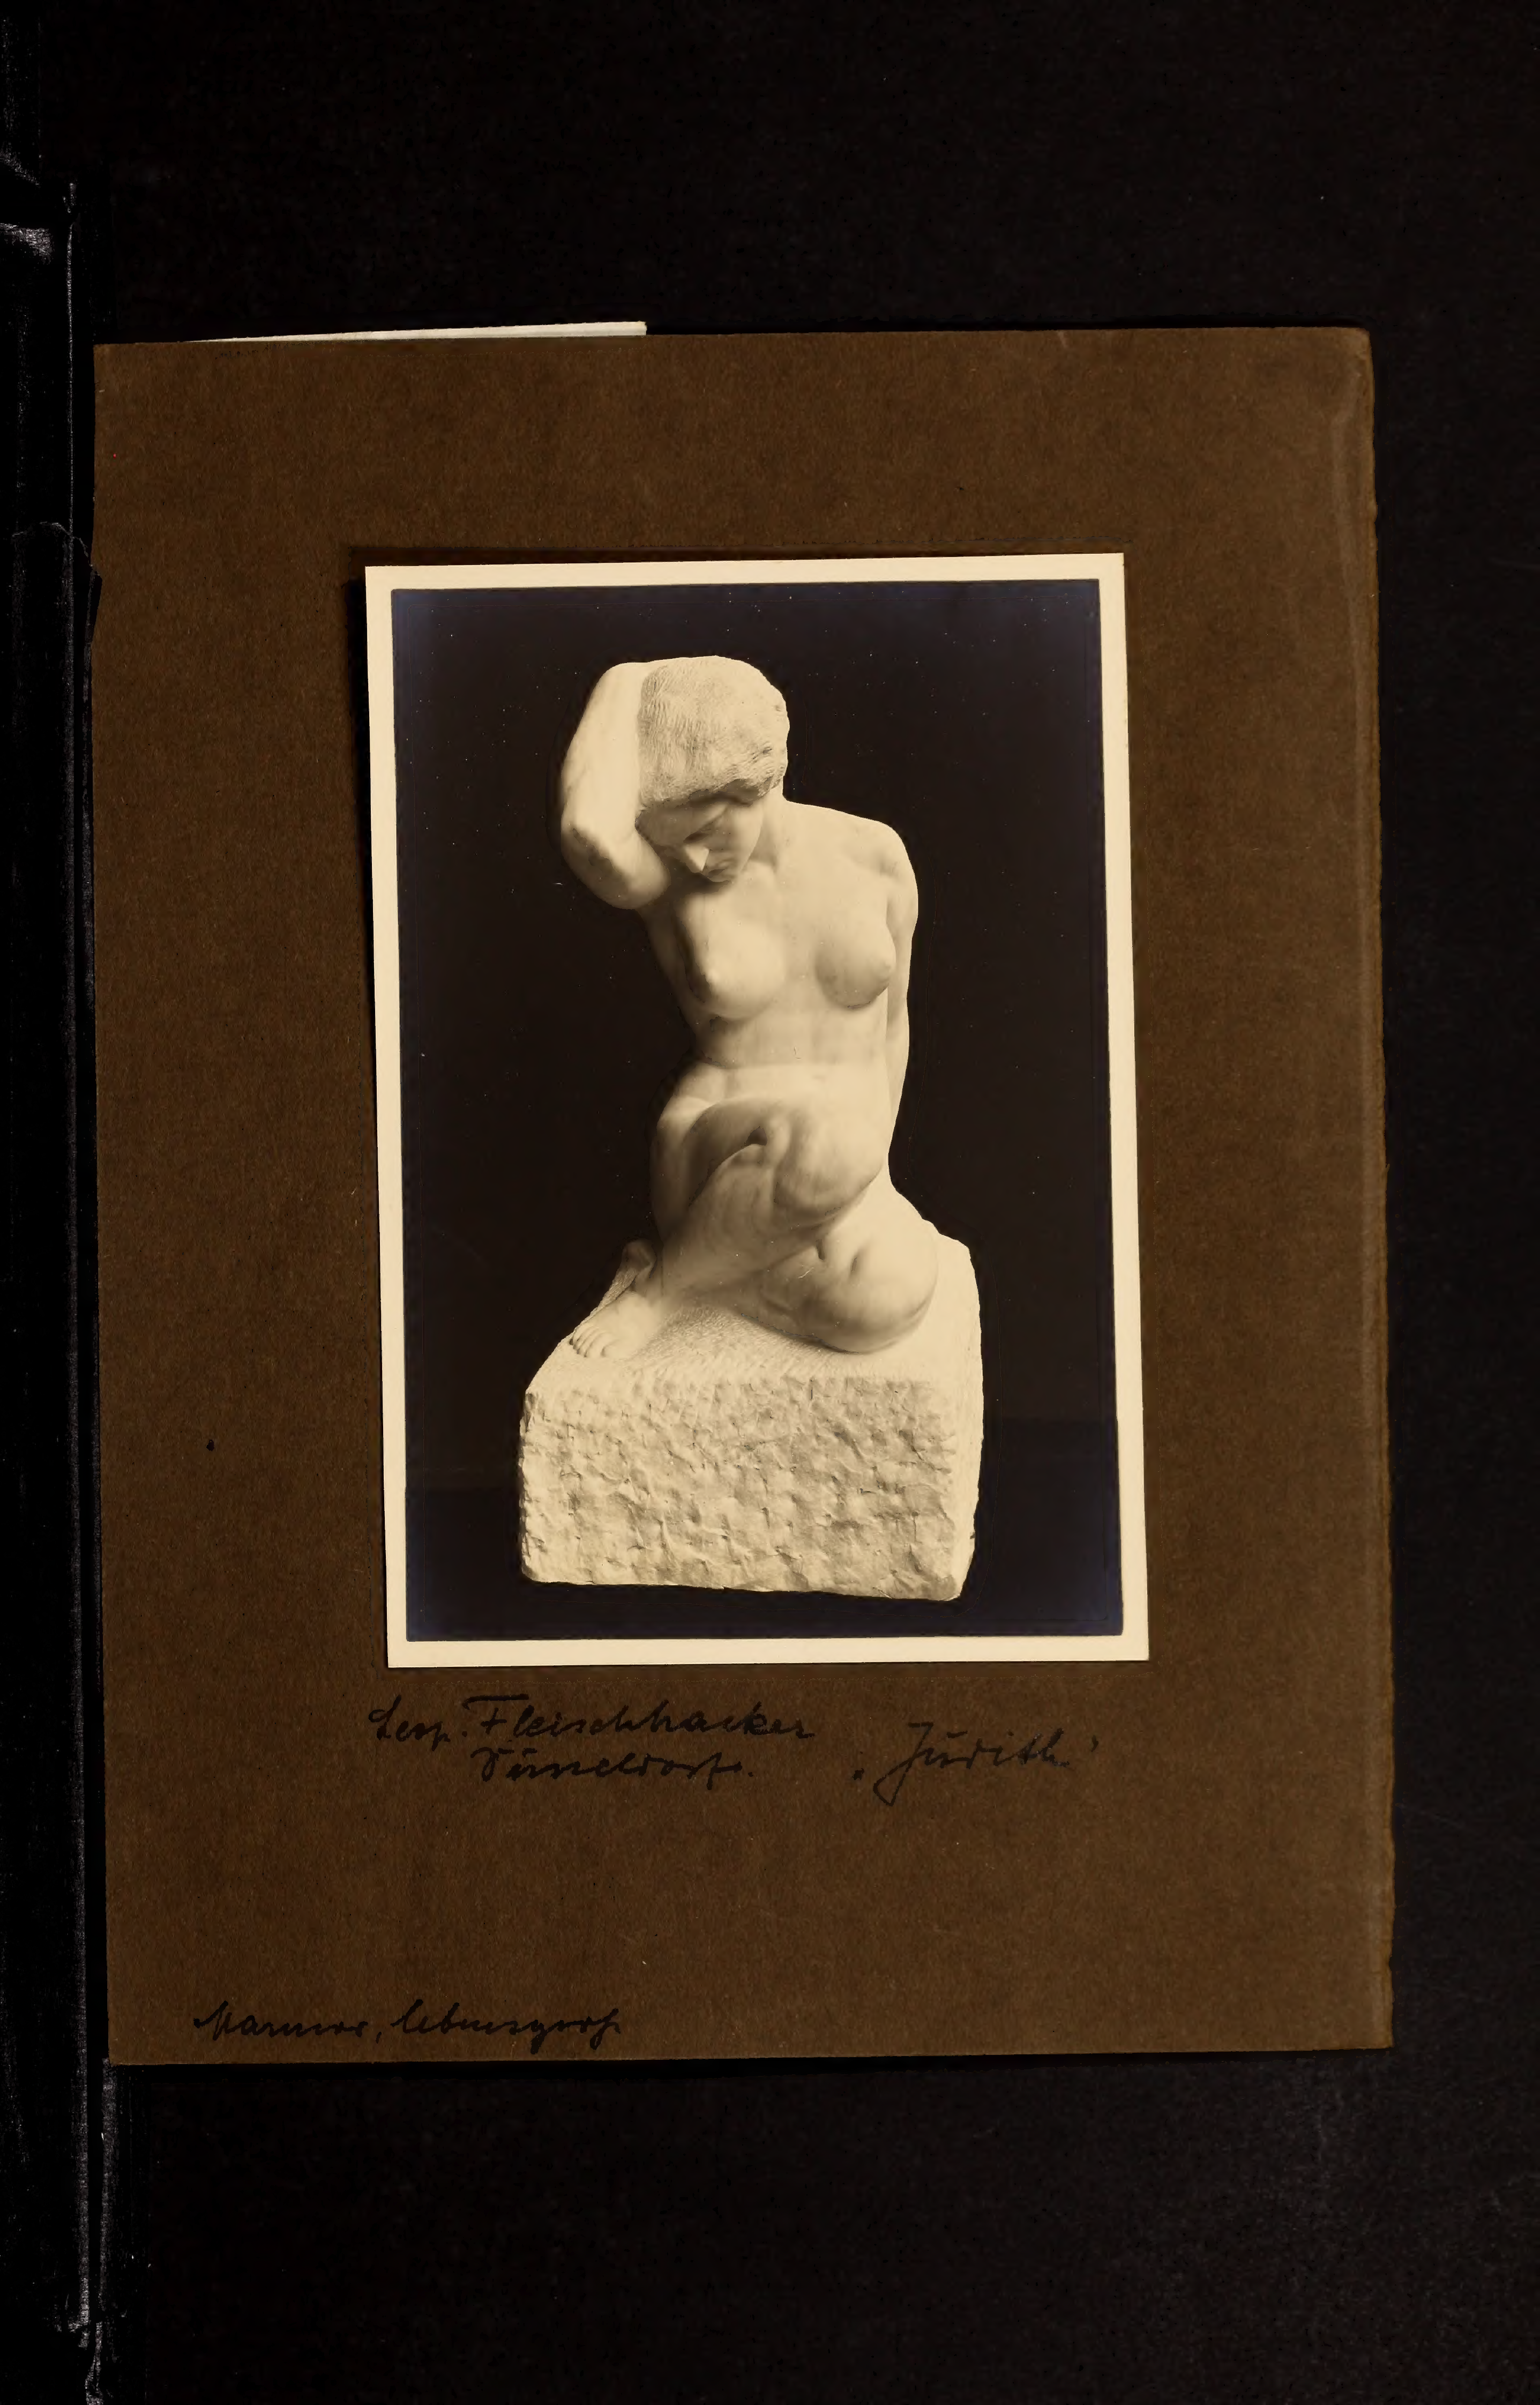 Leop. Fleischhacker
Düsseldorf. „Judith"
Marmor, lebensgroß